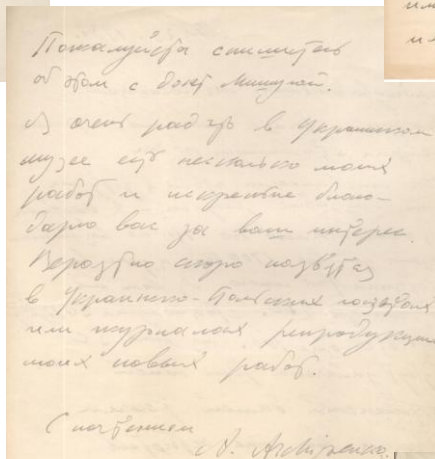 Пожалуйста спишитесь
об этом с Докт Мишугой.
Я очень рад что в Украинском
музее есть несколько моих
работ и искренне благо-
дарю вас за ваш интерес.
Вероятно скоро появятся
в Украинско-
или журналах репродукции
моих новых работ.
С почтением
A. Archipenko